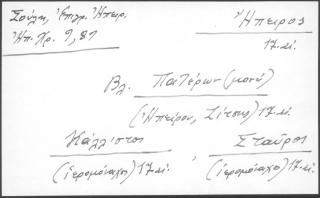 Σούλη, Ἐπιγρ. Ἠπειρ.
Ἠπ. Χρ. 9, 87
Ἤπειρος
17. αἰ.
Βλ. Πατέρων (μονή)
(Ἠπείρου, Ζίτσης) 17. αἰ.
Κάλλιστος
(ἱερομόναχος) 17. αἰ.
, Σταῦρος
(ἱερομόναχος) 17. αἰ.